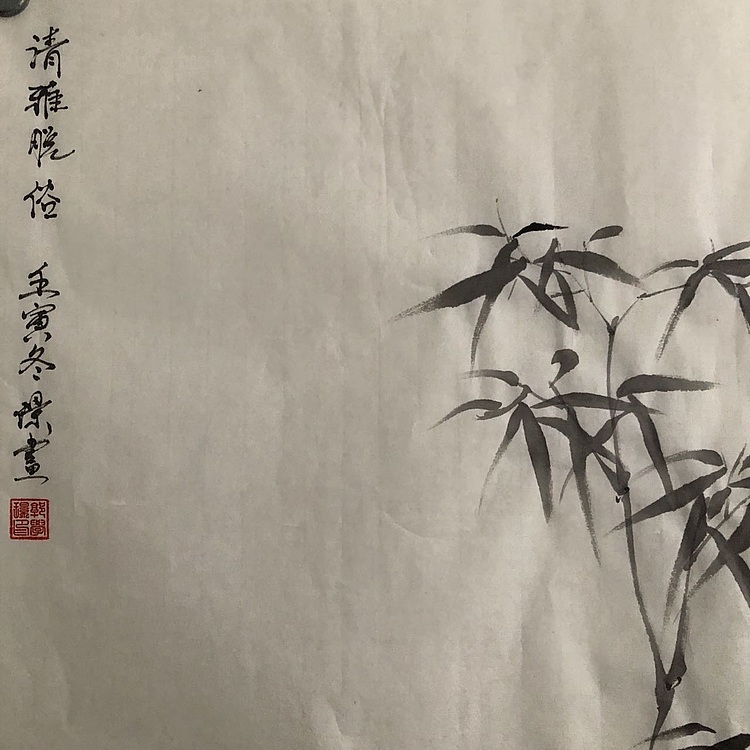 清雅脱俗 壬寅冬 畫